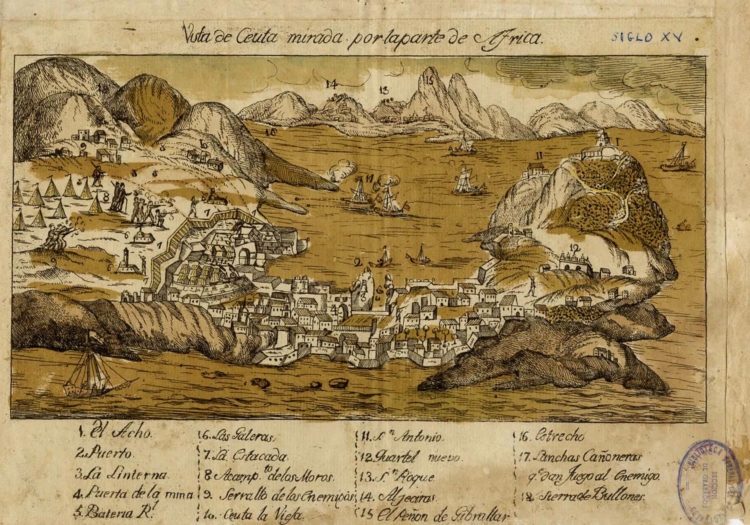 Vista de Ceuta mirada por la parte de Africa.
SIGLO XV
14
13
15
18
11
17
12
1. El Acho.
2. Puerto.
3. La Linterna.
4. Puerta de la mina
5. Bateria Rl.
6. Las Galeras.
7. La Estacada.
8 Acamp.to de los Moros.
9. Serrallo de los Enemigos
10. Ceuta la Vieja
11. Sn Antonio.
12. Quartel nuevo.
13. Sn Roque
14. Algeciras
15 El Peñon de Gibraltar
16. Estrecho
17. Lanchas Cañoneras
qe. dan fuego al Enemigo
18. Sierra de Bullones.